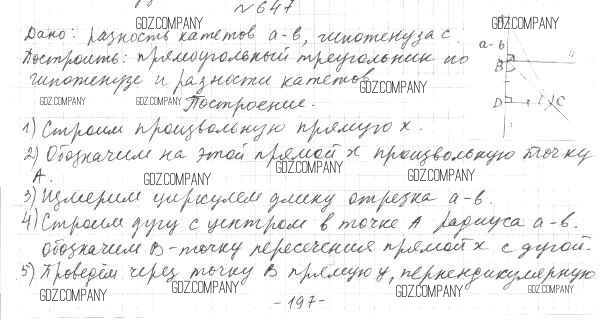 №647
Дано: разность катетов a-b, гипотенуза c.
Построить: прямоугольный треугольник по
гипотенузе и разности катетов.
Построение.
1) Строим произвольную прямую x.
2) Обозначим на этой прямой x произвольную точку
A.
3) Измерим циркулем длину отрезка a-b.
4) Строим дугу с центром в точке A радиуса a-b.
обозначим B-точку пересечения прямой x с дугой.
5) Проведём через точку B прямую y, перпендикулярную
-197-
a-b
B
D
C
GDZ.COMPANY
GDZ.COMPANY
GDZ.COMPANY
GDZ.COMPANY
GDZ.COMPANY
GDZ.COMPANY
GDZ.COMPANY
GDZ.COMPANY
GDZ.COMPANY
GDZ.COMPANY
GDZ.COMPANY
GDZ.COMPANY
GDZ.COMPANY